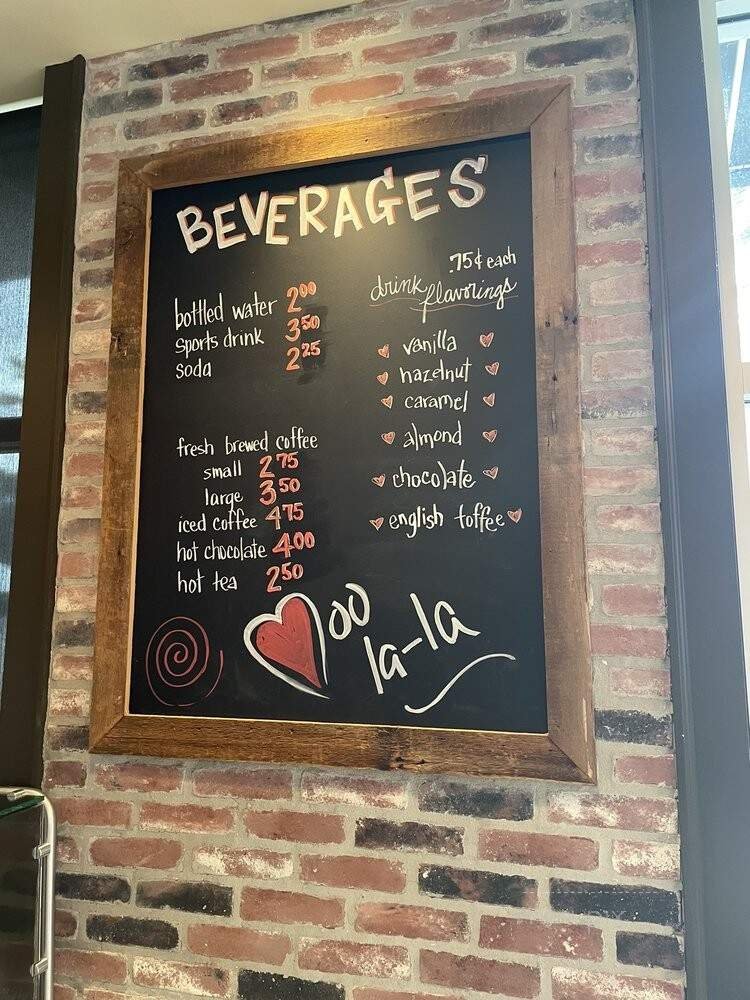 BEVERAGES
bottled water 2.00
sports drink 3.50
soda 2.25
fresh brewed coffee
small 2.75
large 3.50
iced coffee 4.75
hot chocolate 4.00
hot tea 2.50
.75¢ each
drink flavorings
vanilla
hazelnut
caramel
almond
chocolate
english toffee
oo
la-la